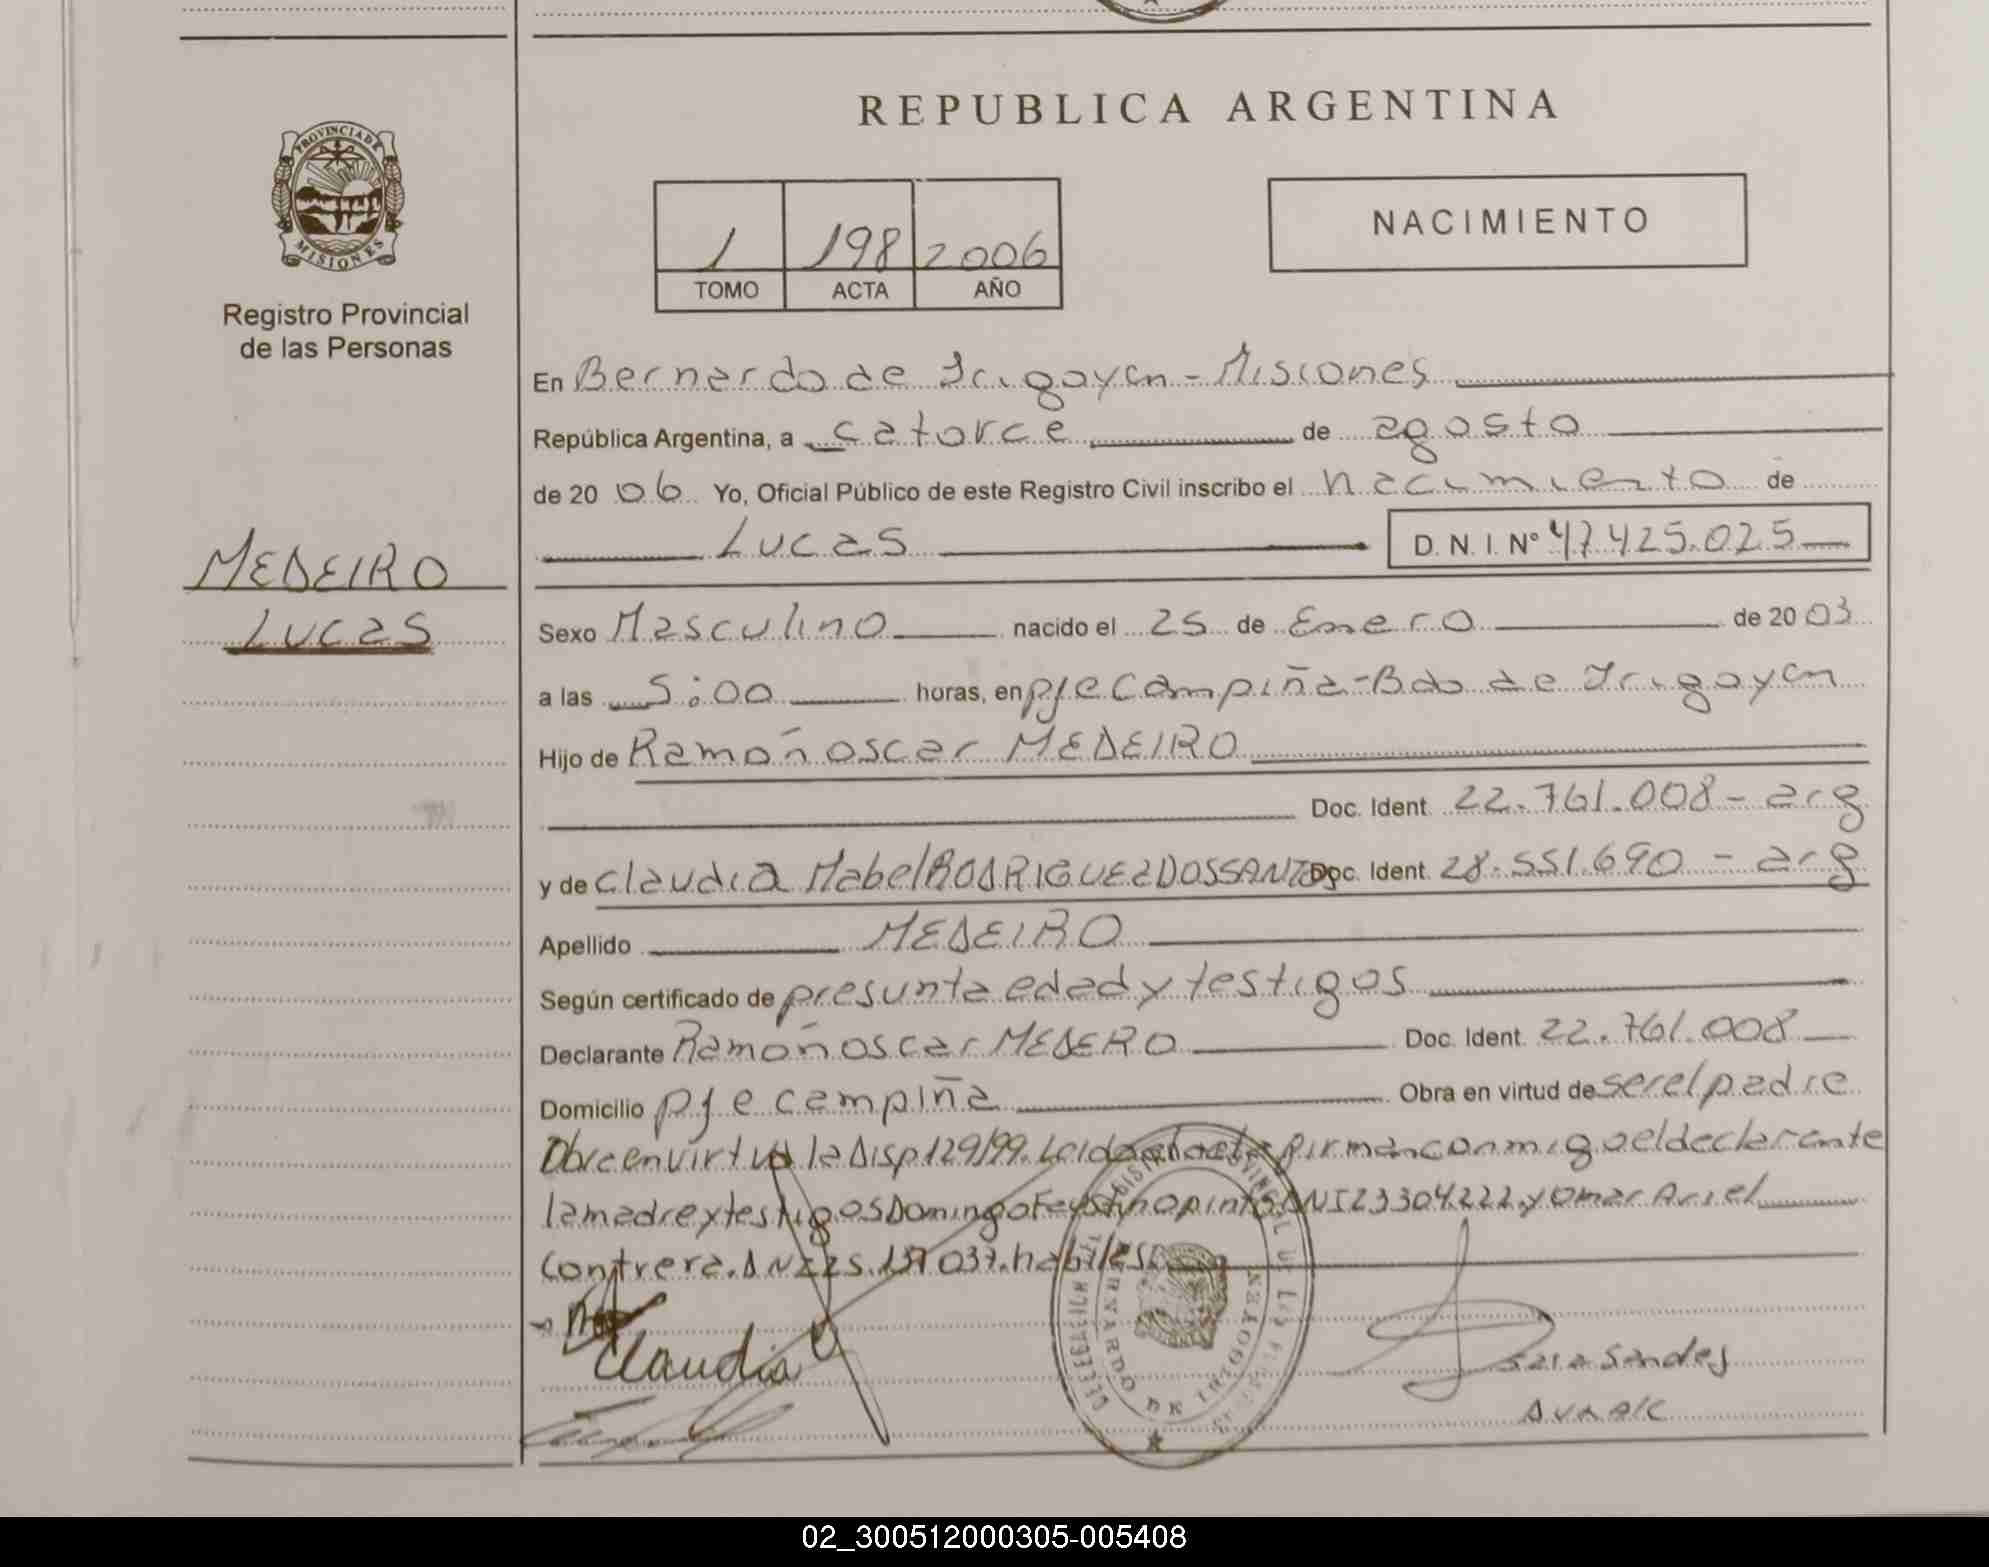 REPUBLICA ARGENTINA
PROVINCIA DE MISIONES
Registro Provincial
de las Personas
MEDEIRO
Lucas
1 198 2006
TOMO ACTA AÑO
NACIMIENTO
En Bernardo de Irigoyen - Misiones
República Argentina, a catorce de agosto
de 20 06 Yo, Oficial Público de este Registro Civil inscribo el nacimiento de
Lucas D. N. I. Nº 47.425.025
Sexo Masculino nacido el 25 de Enero de 20 03
a las 5:00 horas, en pje Campiña - Bdo de Irigoyen
Hijo de Ramón oscar MEDEIRO
Doc. Ident. 22.761.008 - arg
y de Claudia Mabel RODRIGUEZ DOSSANTOS Doc. Ident. 28.551.690 - arg
Apellido MEDEIRO
Según certificado de presunta edad y testigos
Declarante Ramón oscar MEDERO Doc. Ident. 22.761.008
Domicilio pje campiña Obra en virtud de ser el padre
Obra en virtud la Disp 129/99. Leida el acta firman conmigo el declarante
la madre y testigos Domingo Faustino pinto DNI 23304.222. y Omar Ariel
Contrera. DNI 25.137037. habiles
Claudia
Sara Sandes
02_300512000305-005408